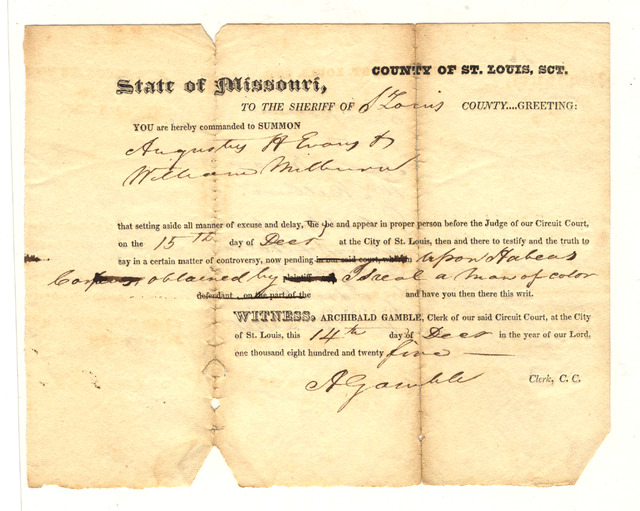 COUNTY OF ST. LOUIS, SCT.
State of Missouri,
TO THE SHERIFF OF St Louis COUNTY....GREETING:
YOU are hereby commanded to SUMMON
Augustus H Evans &
William Milburn
that setting aside all manner of excuse and delay, the y be and appear in proper person before the Judge of our Circuit Court,
on the 15th day of Decr at the City of St. Louis, then and there to testify and the truth to
say in a certain matter of controversy, now pending in our said court, upon Habeas
Corpus obtained by plaintiff Isreal a man of color
defendant, on the part of the and have you then there this writ.
WITNESS, ARCHIBALD GAMBLE, Clerk of our said Circuit Court, at the City
of St. Louis, this 14th day of Decr in the year of our Lord,
one thousand eight hundred and twenty five
A Gamble Clerk, C. C.